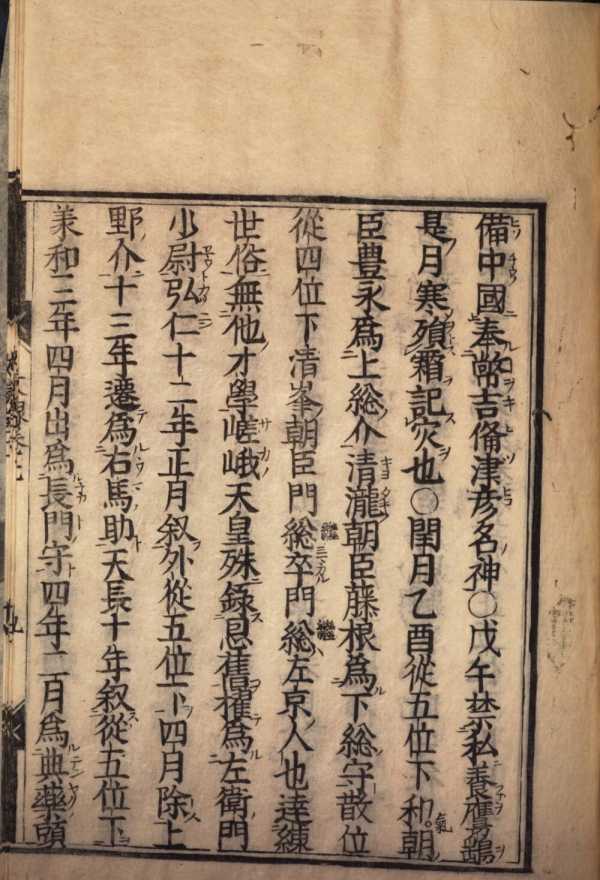 備中國奉幣吉備津彦名神〇戊午禁私養鷹鷂
是月寒殞霜記灾也〇閏月乙酉從五位下和朝
臣豊永爲上総介清瀧朝臣藤根爲下総守散位
從四位下清峯朝臣門総卒門総左京人也達練
世俗無他才學嵯峨天皇殊錄恩舊擢爲左衛門
少尉弘仁十二年正月叙外從五位下四月除上
野介十三年遷爲右馬助天長十年叙從五位下
承和三年四月出爲長門守四年二月爲典藥頭